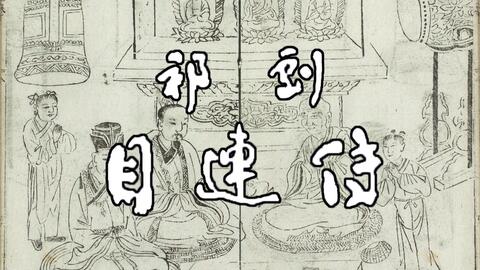 祁剧
目連传